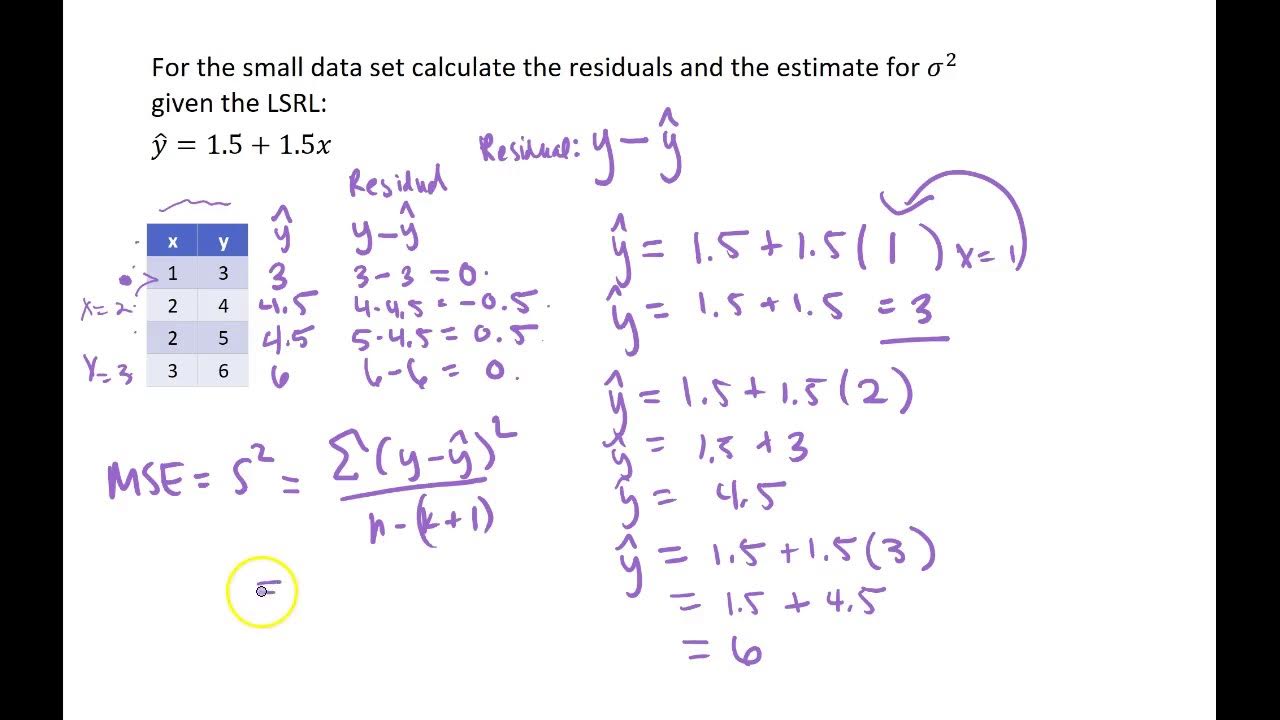 For the small data set calculate the residuals and the estimate for σ²
given the LSRL:
ŷ = 1.5 + 1.5x
Residual: y - ŷ
Residual
x y ŷ y - ŷ
1 3 3 3 - 3 = 0
x=2 2 4 4.5 4 - 4.5 = -0.5
2 5 4.5 5 - 4.5 = 0.5
x=3 3 6 6 6 - 6 = 0
MSE = S² = Σ(y - ŷ)² / n - (k + 1)
=
ŷ = 1.5 + 1.5(1) x=1
ŷ = 1.5 + 1.5 = 3
ŷ = 1.5 + 1.5(2)
ŷ = 1.5 + 3
ŷ = 4.5
ŷ = 1.5 + 1.5(3)
= 1.5 + 4.5
= 6